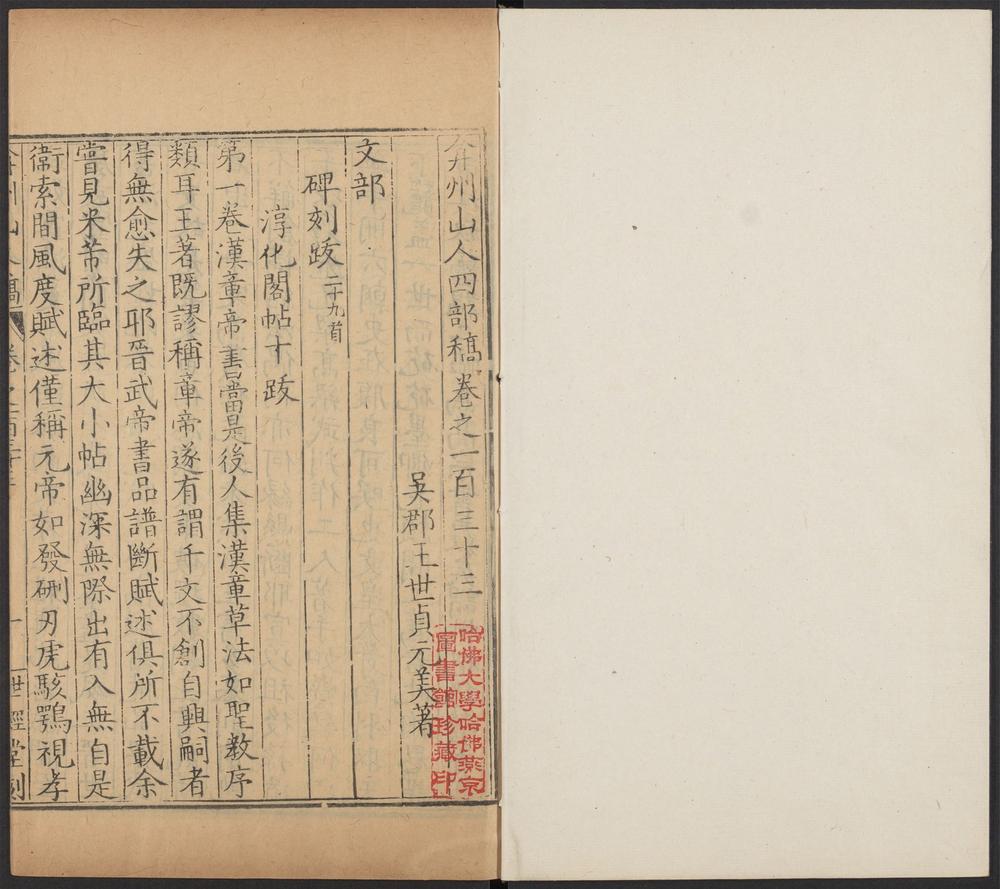 弇州山人四部稿卷之一百三十三
吳郡王世貞元美著
文部
碑刻跋二十九首
淳化閣帖十跋
第一卷漢章帝書當是後人集漢章草法如聖教序
類耳王著旣謬稱章帝遂有謂千文不創自興嗣者
得無愈失之耶晉武帝書品譜斷賦述俱所不載余
嘗見米芾所臨其大小帖幽深無際出有入無自是
衞索間風度賦述僅稱元帝如發硎刃虎駭鶚視孝
一 世經堂刻
哈佛大學哈佛燕京
圖書館珍藏印